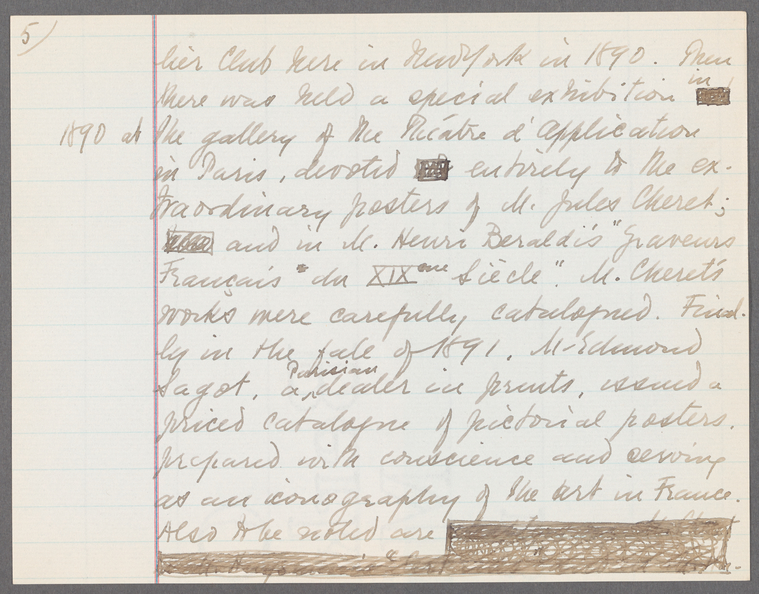 5
lier Club here in New York in 1890. Then
there was held a special exhibition in
1890 at the gallery of the Théatre d'Application
in Paris, devoted entirely to the ex-
traordinary posters of M. Jules Cheret;
and in M. Henri Beraldi's "Graveurs
Français du XIXeme Siècle". M. Cheret's
works were carefully catalogued. Final-
ly in the fale of 1891, M. Edmond
Sagot, a Parisian dealer in prints, issued a
priced catalogue of pictorial posters,
prepared with conscience and serving
as an iconography of the art in France.
Also to be noted are